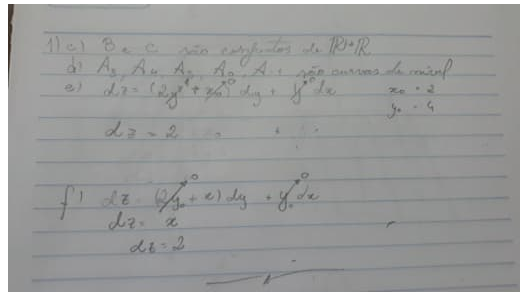 1) c) B e C são conjuntos de IR → IR
d) A₃, A₄, A₂, A₀, A₋₁ são curvas de nível
e) dz = (2y + x₀) dy + y dx x₀ = 2
y₀ = 4
dz = 2
f) dz = (2y₀ + x) dy + y₀ dx
dz = x
dz = 2